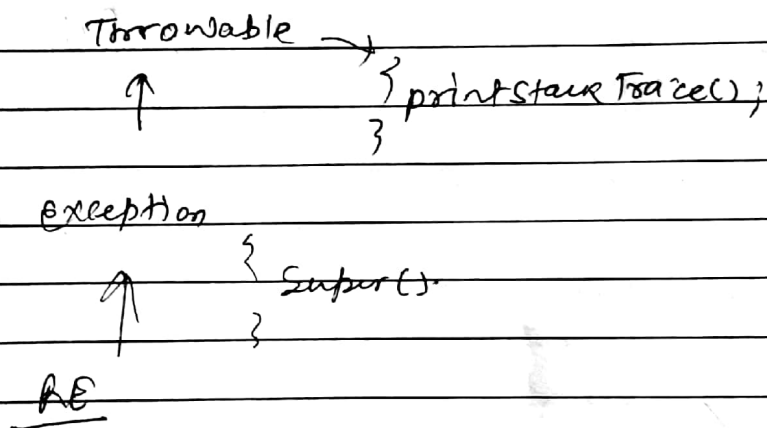 Throwable →
{ printStackTrace();
}
exception
{
Super().
}
RE